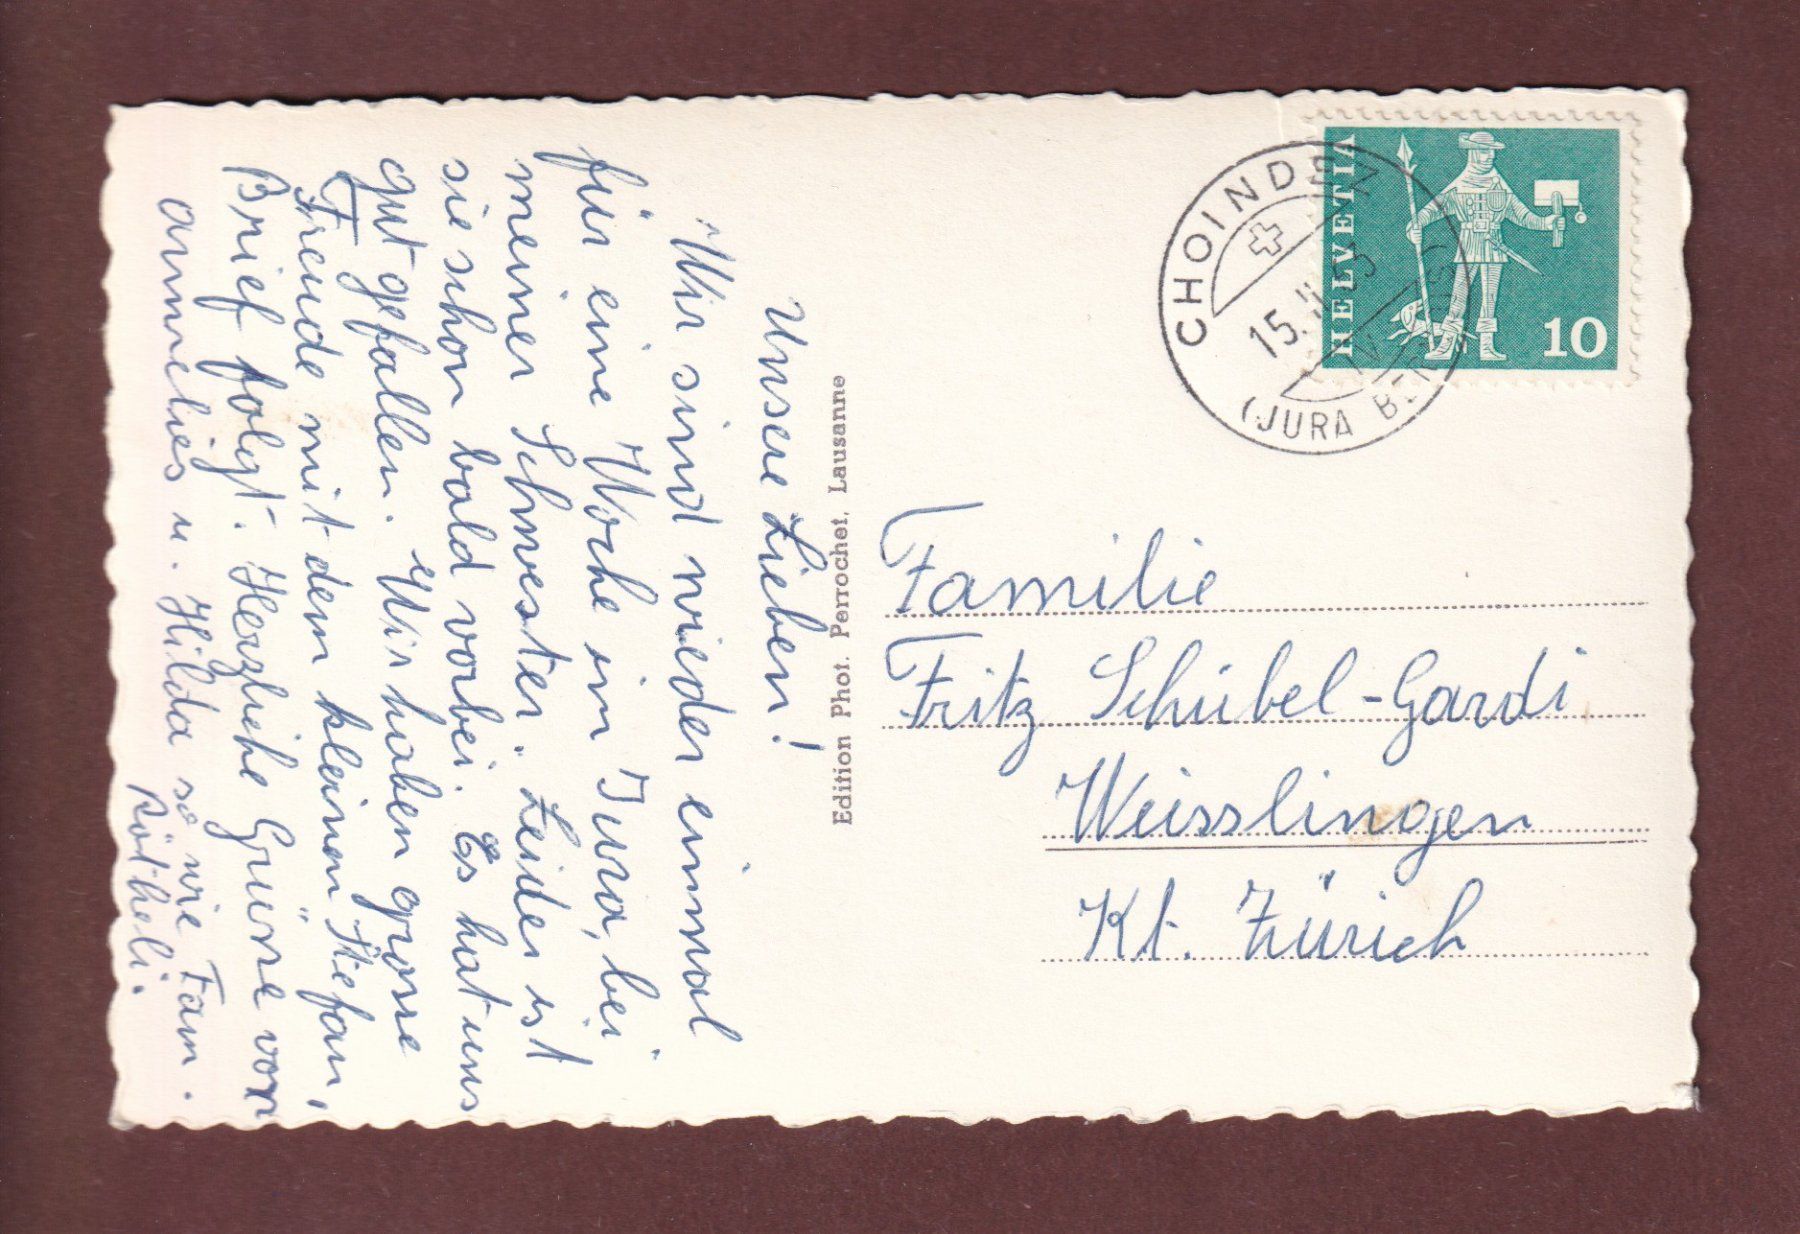 Unsere Lieben!
Wir sind wieder einmal
für eine Woche im Jura, bei
meiner Schwester. Leider ist
sie schon bald vorbei. Es hat uns
gut gefallen. Wir haben grosse
Freude mit dem kleinen Stefan,
Brief folgt. Herzliche Grüsse von
Annelies u. Hilda so wie Fam.
Rötheli.
Edition Phot. Perrochet, Lausanne
CHOINDEZ
15.
(JURA BERNOIS)
HELVETIA
10
Familie
Fritz Schübel-Gardi
Weisslingen
Kt. Zürich